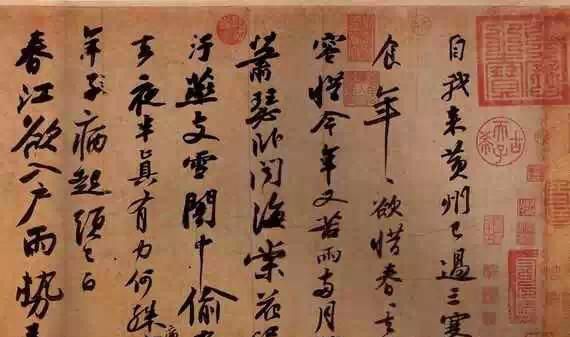 自我來黃州已過三寒
食年〻欲惜春〻
容惜今年又苦雨兩月
蕭瑟卧聞海棠花
汙燕支雪闇中偷
去夜半真有力何殊
年子病起頭已白
春江欲入户雨勢
古希天子